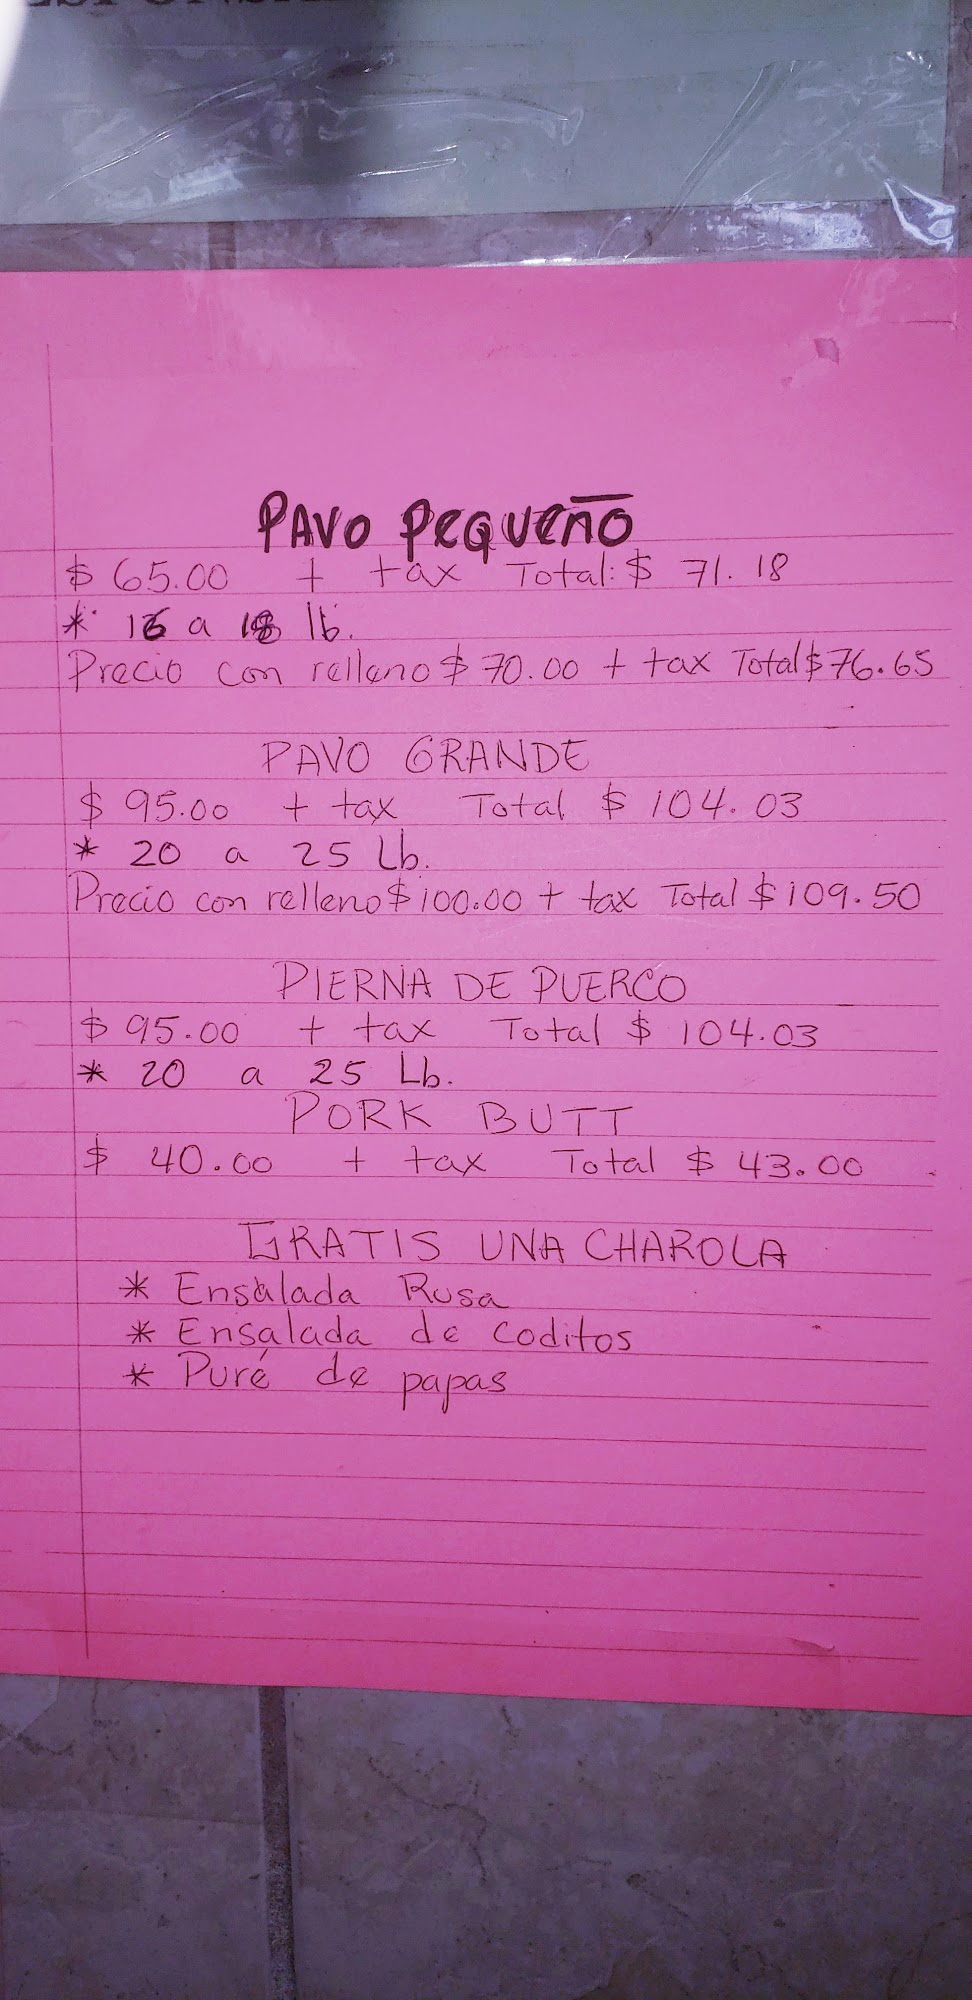 PAVO PEQUEÑO
$ 65.00 + tax Total: $ 71.18
* 16 a 18 lb.
Precio con relleno $ 70.00 + tax Total $76.65
PAVO GRANDE
$ 95.00 + tax Total $ 104.03
* 20 a 25 Lb.
Precio con relleno $ 100.00 + tax Total $ 109.50
PIERNA DE PUERCO
$ 95.00 + tax Total $ 104.03
* 20 a 25 Lb.
PORK BUTT
$ 40.00 + tax Total $ 43.00
GRATIS UNA CHAROLA
* Ensalada Rusa
* Ensalada de coditos
* Puré de papas